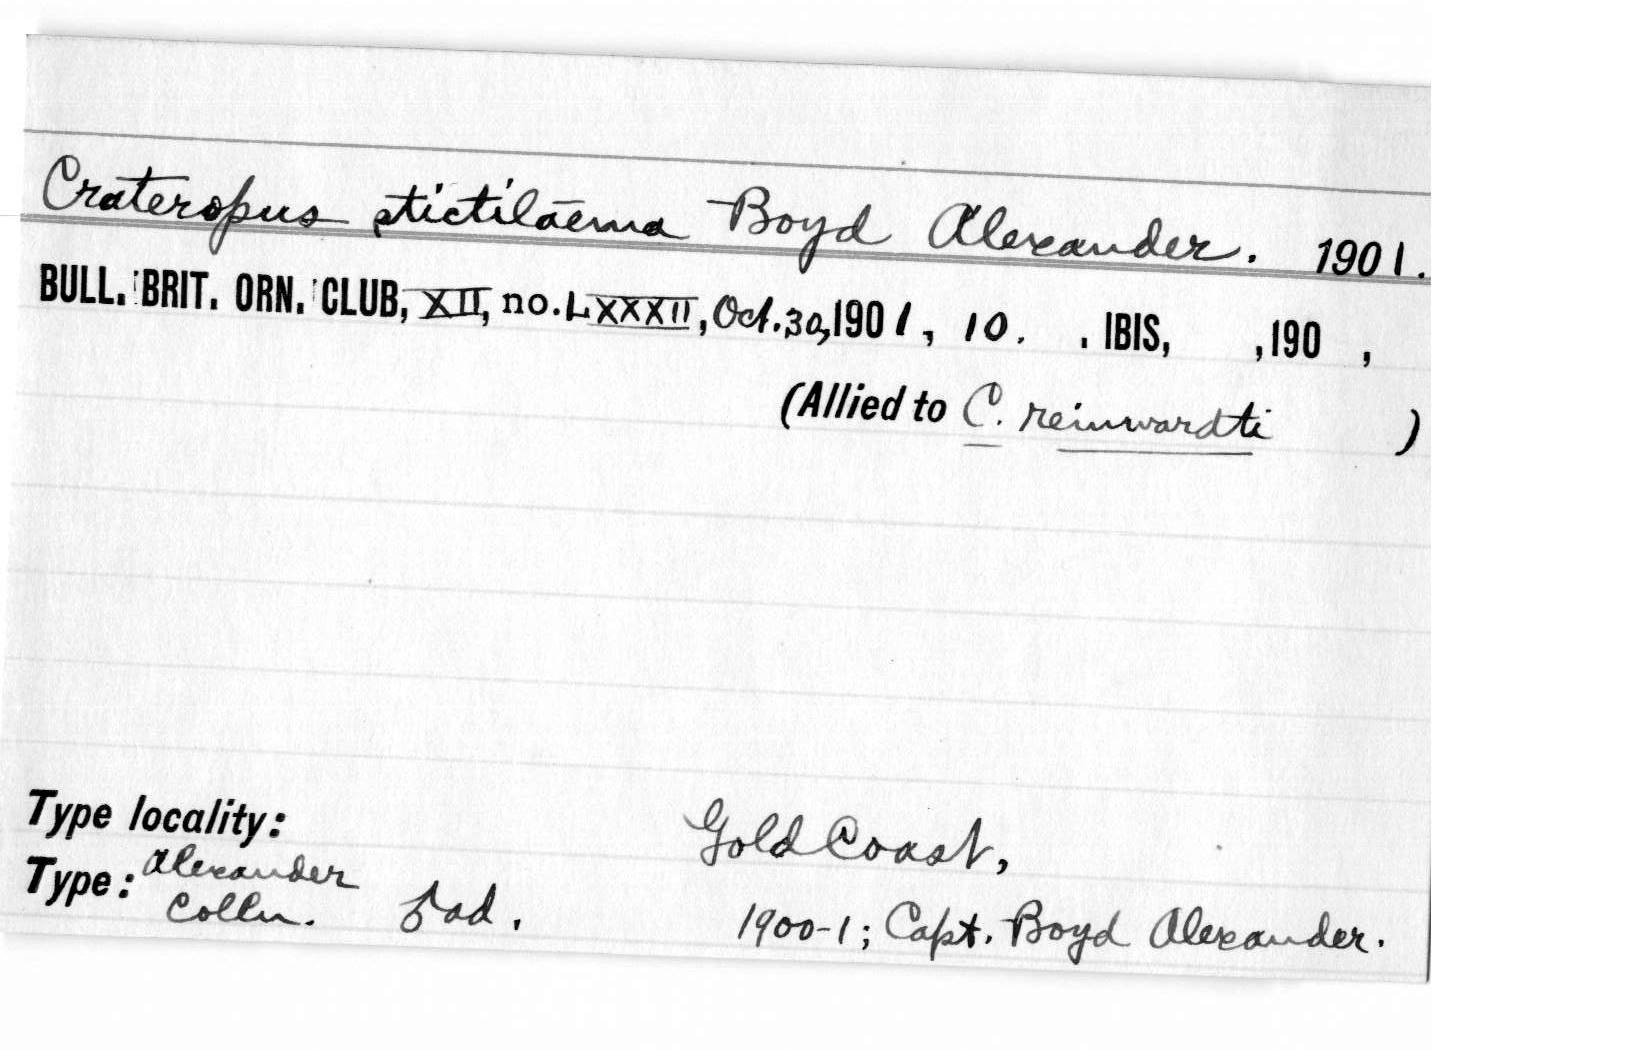 Crateropus stictilaema Boyd Alexander. 1901.
BULL. BRIT. ORN. CLUB, XII, no. LXXXII, Oct. 30, 1901, 10. . IBIS, , 190 ,
(Allied to C. reinwardti )
Type locality: Gold Coast,
Type: Alexander Colln. ad. 1900-1; Capt. Boyd Alexander.